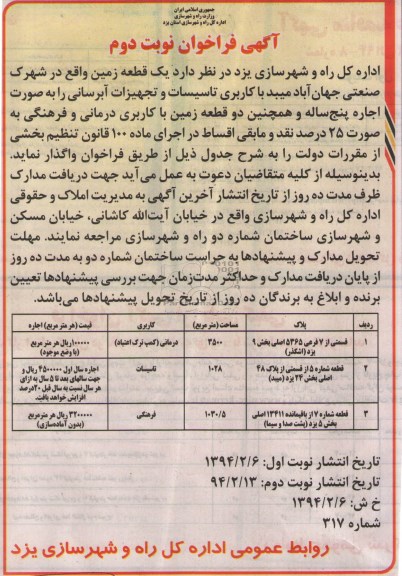 جمهوری اسلامی ایران
وزارت راه و شهرسازی
اداره کل راه و شهرسازی استان یزد
آگهی فراخوان نوبت دوم
اداره کل راه و شهرسازی یزد در نظر دارد یک قطعه زمین واقع در شهرک
صنعتی جهان‌آباد میبد با کاربری تاسیسات و تجهیزات آبرسانی را به صورت
اجاره پنج‌ساله و همچنین دو قطعه زمین با کاربری درمانی و فرهنگی به
صورت ۲۵ درصد نقد و مابقی اقساط در اجرای ماده ۱۰۰ قانون تنظیم بخشی
از مقررات دولت را به شرح جدول ذیل از طریق فراخوان واگذار نماید.
بدینوسیله از کلیه متقاضیان دعوت به عمل می‌آید جهت دریافت مدارک
ظرف مدت ده روز از تاریخ انتشار آخرین آگهی به مدیریت املاک و حقوقی
اداره کل راه و شهرسازی واقع در خیابان آیت‌الله کاشانی، خیابان مسکن
و شهرسازی ساختمان شماره دو راه و شهرسازی مراجعه نمایند. مهلت
تحویل مدارک و پیشنهادها به حراست ساختمان شماره دو به مدت ده روز
از پایان دریافت مدارک و حداکثر مدت‌زمان جهت بررسی پیشنهادها تعیین
برنده و ابلاغ به برندگان ده روز از تاریخ تحویل پیشنهادها می‌باشد.
ردیف پلاک مساحت (متر مربع) کاربری قیمت (هر متر مربع) اجاره
۱ قسمتی از ۷ فرعی ۵۳۶۵ اصلی بخش ۹ یزد (اشکذر) ۳۵۰۰ درمانی (کمپ ترک اعتیاد) ۱۰۰۰۰۰ ریال هر متر مربع (با وضع موجود)
۲ قطعه شماره ۵ از قسمتی از پلاک ۴۸ اصلی بخش ۲۳ یزد (میبد) ۱۰۲۸ تاسیسات اجاره سال اول ۴۵۰۰۰۰۰ ریال و جهت سالهای بعد تا ۵ سال به ازای هر سال نسبت به سال قبل ۲۰ درصد افزایش خواهد یافت.
۳ قطعه شماره ۷ از باقیمانده ۱۳۴۱۱ اصلی بخش ۵ یزد (پشت صدا و سیما) ۱۰۳۰/۵ فرهنگی ۳۲۰۰۰۰۰ ریال هر مترمربع (بدون آماده‌سازی)
تاریخ انتشار نوبت اول: ۱۳۹۴/۲/۶
تاریخ انتشار نوبت دوم: ۹۴/۲/۱۳
خ ش: ۱۳۹۴/۲/۶
شماره ۳۱۷
روابط عمومی اداره کل راه و شهرسازی یزد